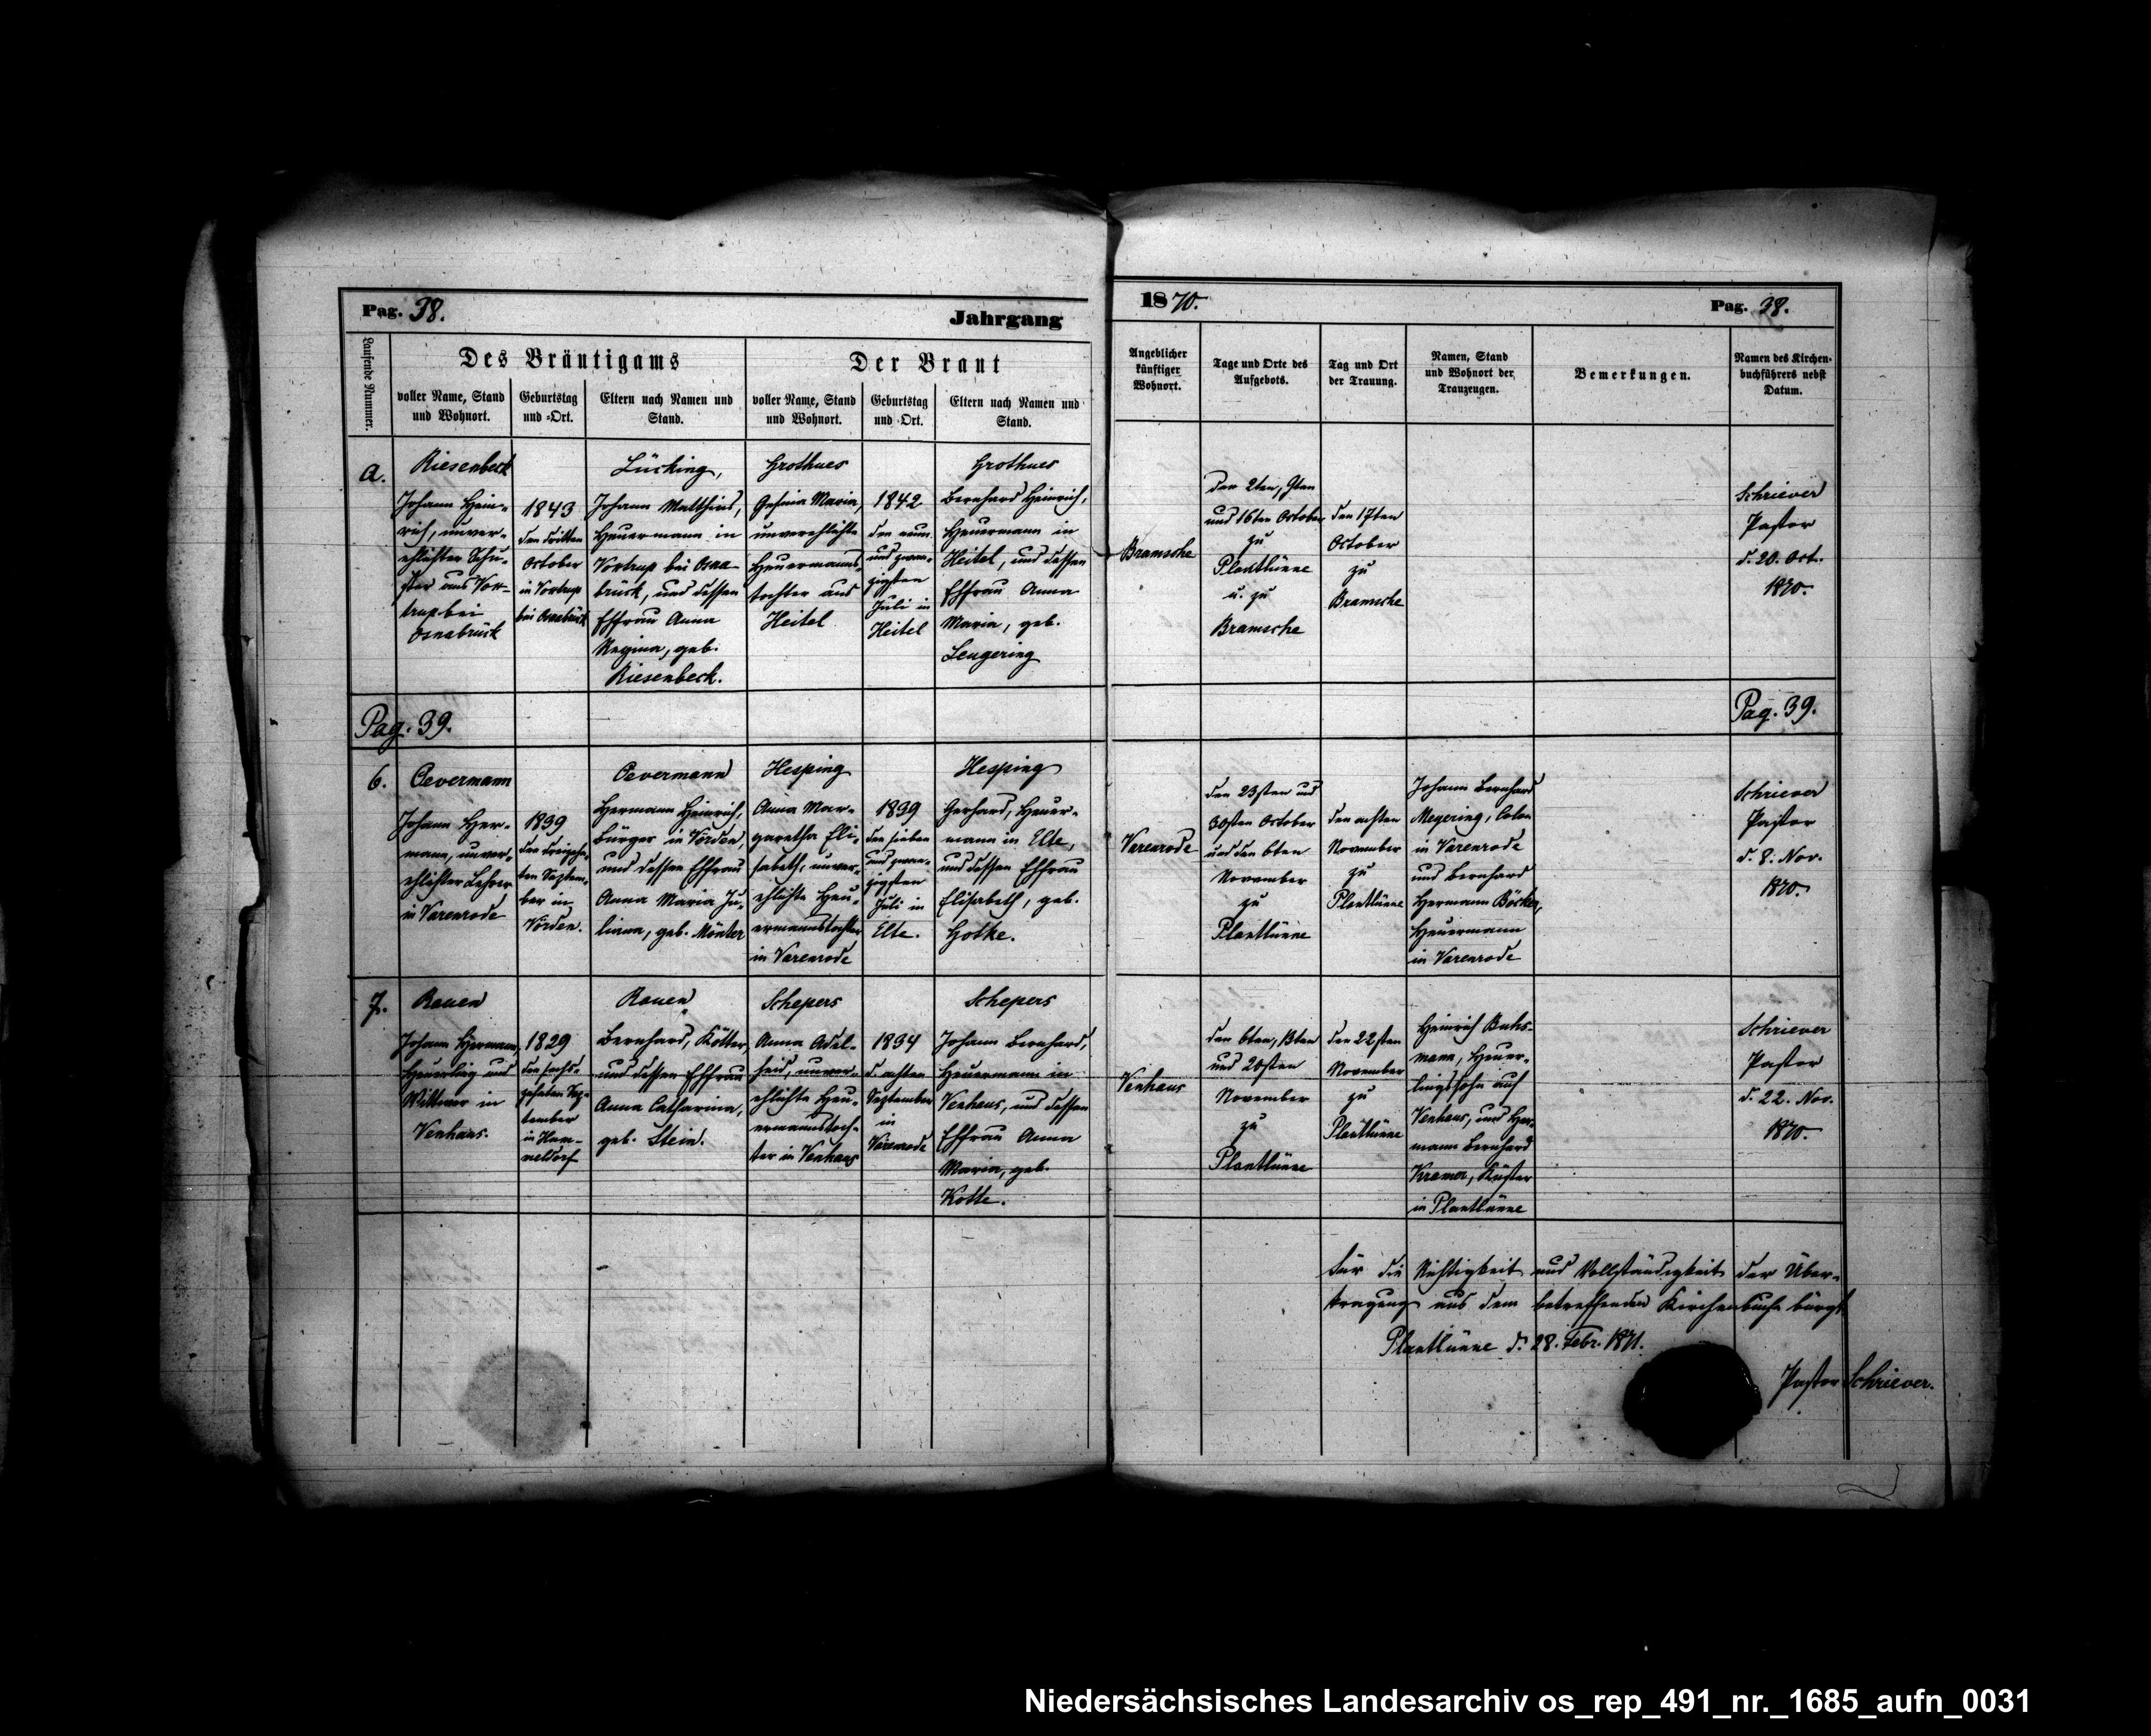 Pag. 38.
Jahrgang
1870.
Pag. 38.
Laufende Nummer.
Des Bräutigams
voller Name, Stand
und Wohnort.
Geburtstag
und =Ort.
Eltern nach Namen und
Stand.
Der Braut
voller Name, Stand
und Wohnort.
Geburtstag
und =Ort.
Eltern nach Namen und
Stand.
Angeblicher
künftiger
Wohnort.
Tage und Orte des
Aufgebots.
Tag und Ort
der Trauung.
Namen, Stand
und Wohnort der
Trauzeugen.
Bemerkungen.
Namen des Kirchen-
buchführers nebst
Datum.
a.
Riesenbeck
Johann Hein-
rich, unver-
ehlichter Schu-
ster aus Vor-
trup bei
Osnabrück
1843
den dritten
October
in Vortrup
bei Osnabrück
Lücking,
Johann Matthias,
Heuermann in
Vortrup bei Osna-
brück, und dessen
Ehefrau Anna
Regina, geb.
Riesenbeck.
Grothues
Gesina Maria,
unverehlichte
Heuermanns-
tochter aus
Heitel
1842
den neun
und zwan-
zigsten
Juli in
Heitel
Grothues
Bernhard Heinrich,
Heuermann in
Heitel, und dessen
Ehefrau Anna
Maria, geb.
Lengering
Bramsche
den 2ten, 9ten
und 16ten October
zu
Plantlünne
u. zu
Bramsche
den 17ten
October
zu
Bramsche
Schriever
Pastor
d. 20. Oct.
1870.
Pag. 39.
Pag. 39.
6.
Oevermann
Johann Her-
mann, unver-
ehlichter Lehrer
in Varenrode
1839
den dreizehn-
ten Septem-
ber in
Vörden.
Oevermann
Hermann Heinrich,
Bürger in Vörden,
und dessen Ehefrau
Anna Maria Ju-
liana, geb. Mönter
Hesping
Anna Mar-
garetha Eli-
sabeth, unver-
ehlichte Heu-
ermannstochter
in Varenrode
1839
den sieben
und zwan-
zigsten
Juli in
Elte.
Hesping
Gerhard, Heuer-
mann in Elte,
und dessen Ehefrau
Elisabeth, geb.
Gotke.
Varenrode
den 23sten und
30sten October
und den 6ten
November
zu
Plantlünne
den achten
November
zu
Plantlünne
Johann Bernhard
Meyering, Colon
in Varenrode
und Bernhard
Hermann Böcker,
Heuermann
in Varenrode
Schriever
Pastor
d. 8. Nov.
1870.
7.
Rauen
Johann Hermann,
Heuerling und
Wittwer in
Venhaus.
1829
den sechs-
zehnten Sep-
tember
in Hum-
meldorf
Rauen
Bernhard, Kötter,
und dessen Ehefrau
Anna Catharina,
geb. Stein.
Schepers
Anna Adel-
heid, unver-
ehlichte Heu-
ermannstoch-
ter in Venhaus
1834
d. achten
September
in
Varenrode
Schepers
Johann Bernhard,
Heuermann in
Venhaus, und dessen
Ehefrau Anna
Maria, geb.
Kotte.
Venhaus
den 6ten, 13ten
und 20sten
November
zu
Plantlünne
den 22sten
November
zu
Plantlünne
Heinrich Buhs-
mann, Heuer-
lingssohn auf
Venhaus, und Her-
mann Bernhard
Kramer, Küster
in Plantlünne
Schriever
Pastor
d. 22. Nov.
1870.
Für die Richtigkeit und Vollständigkeit der Über-
tragung aus dem betreffenden Kirchenbuche bürgt
Plantlünne d. 28. Febr. 1871.
Pastor Schriever.
Niedersächsisches Landesarchiv os_rep_491_nr._1685_aufn_0031